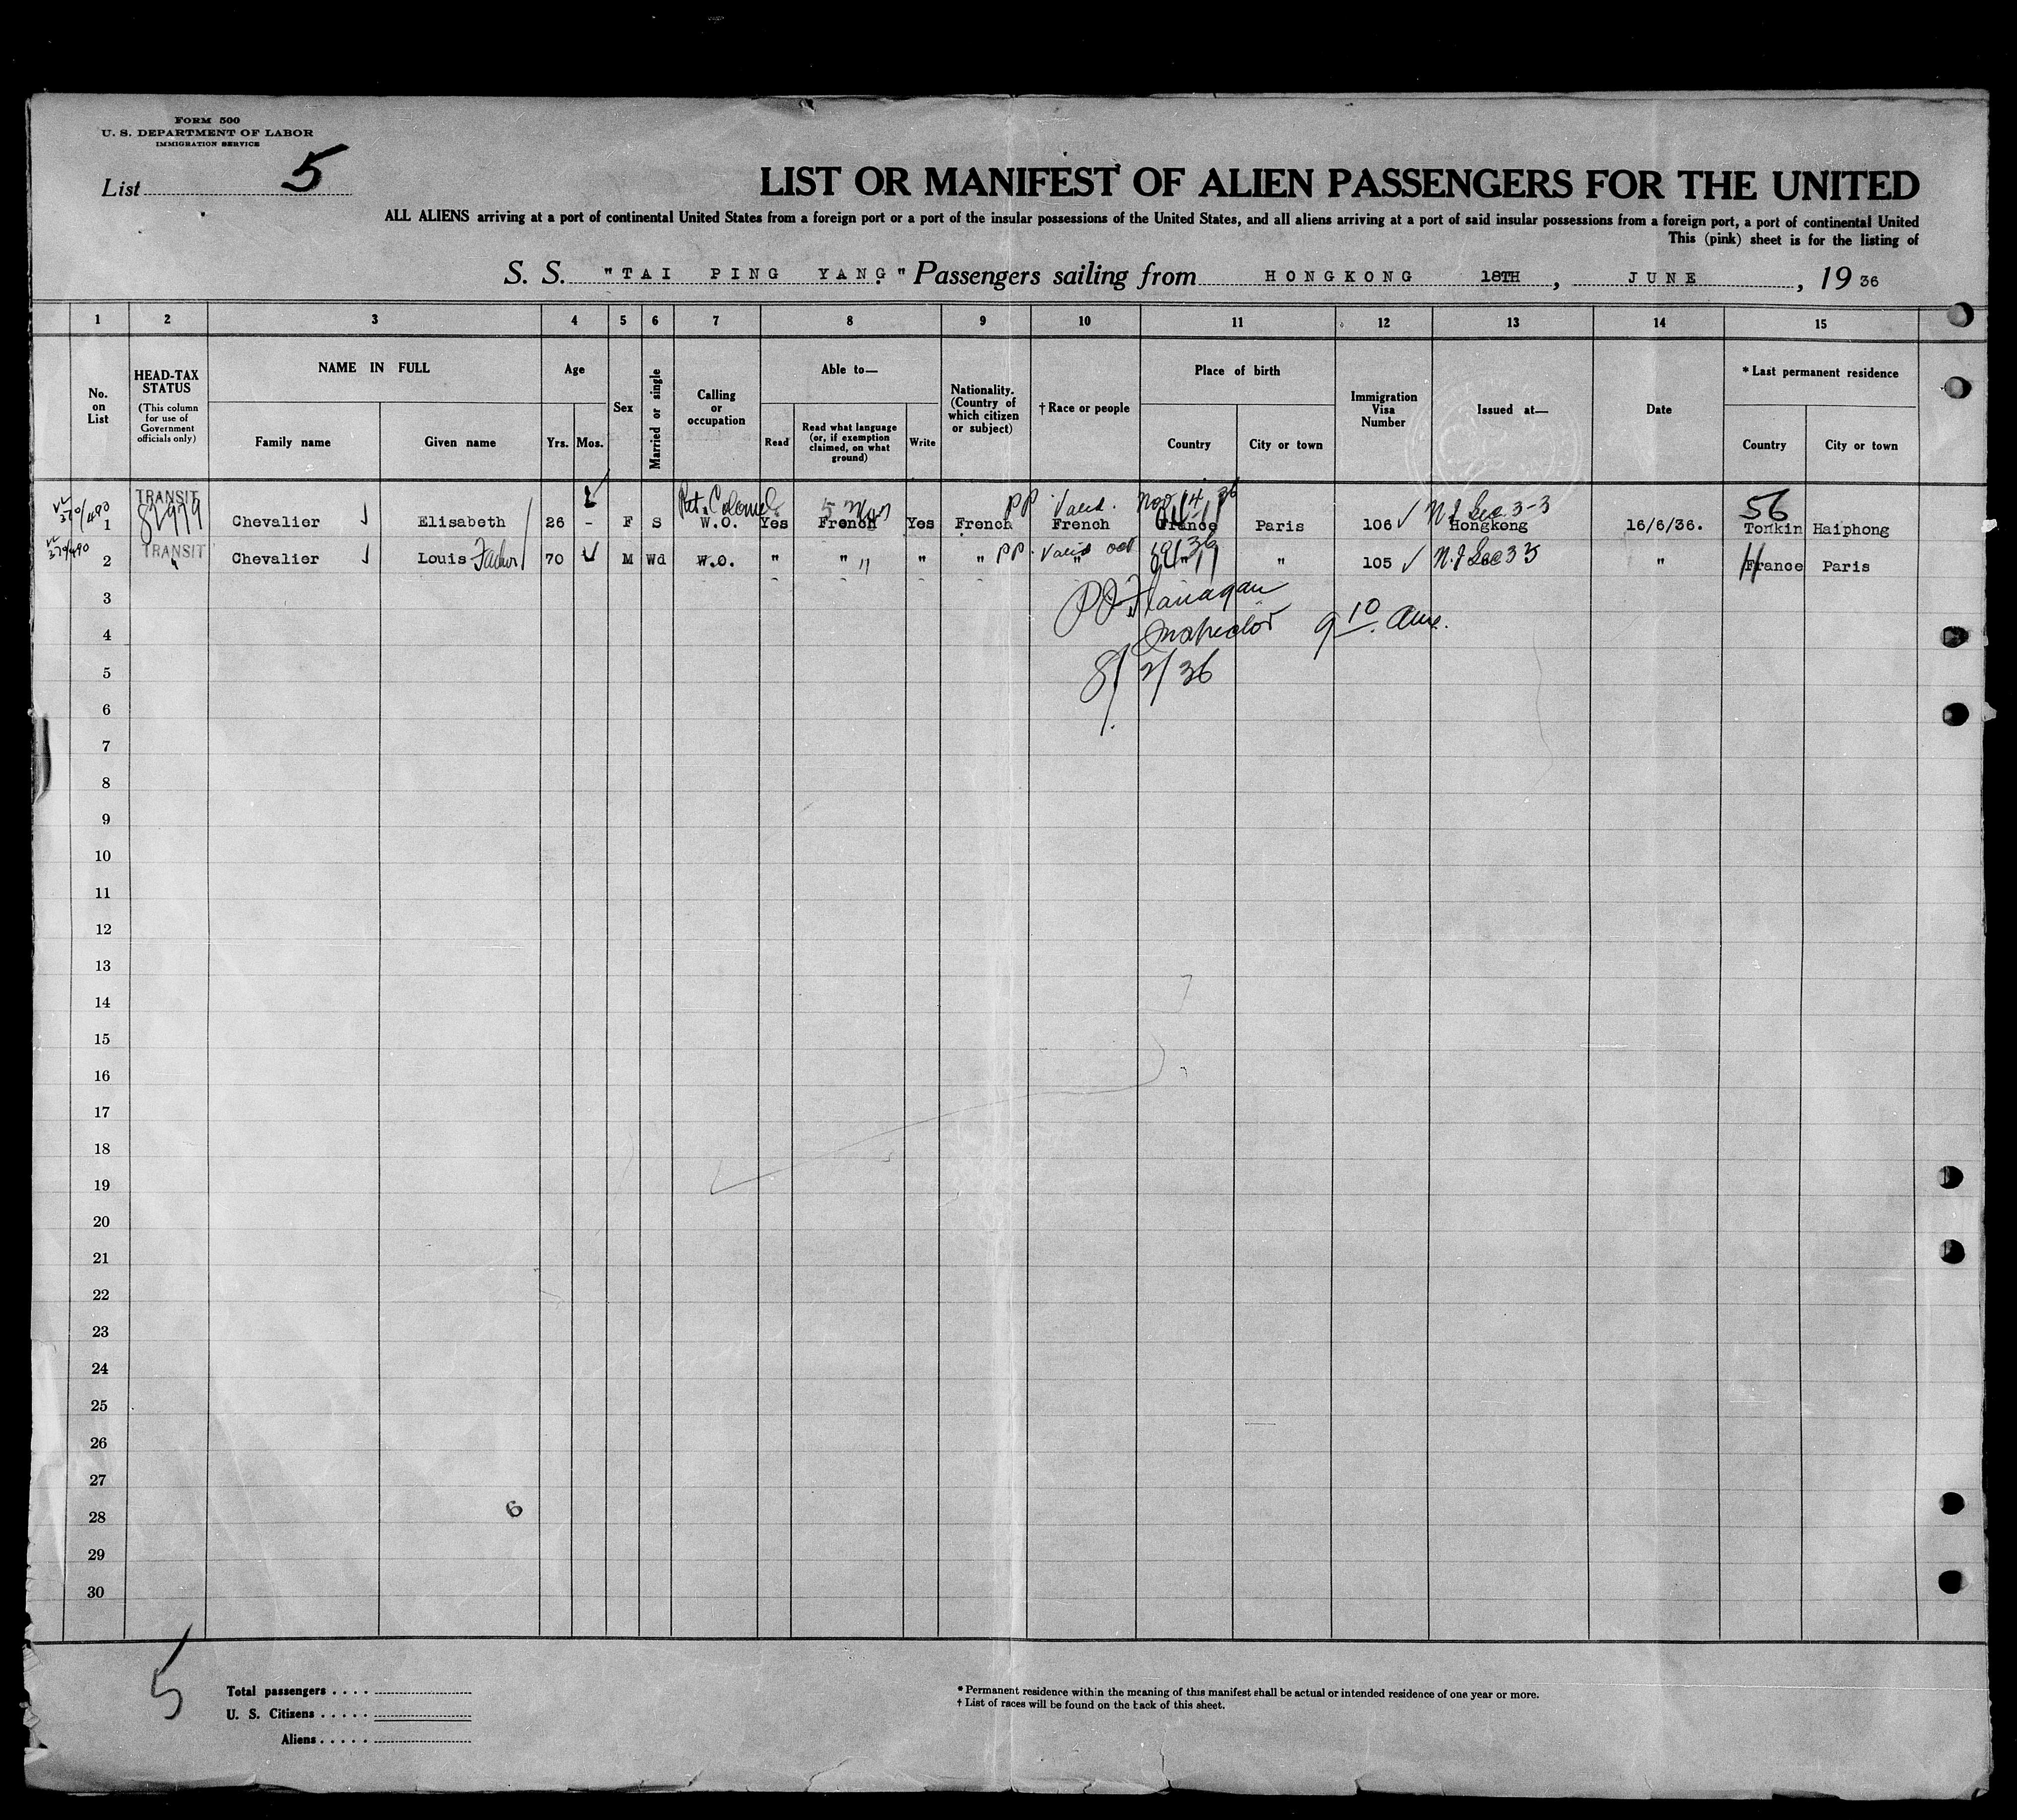 FORM 500
U. S. DEPARTMENT OF LABOR
IMMIGRATION SERVICE
List 5
LIST OR MANIFEST OF ALIEN PASSENGERS FOR THE UNITED
ALL ALIENS arriving at a port of continental United States from a foreign port or a port of the insular possessions of the United States, and all aliens arriving at a port of said insular possessions from a foreign port, a port of continental United
This (pink) sheet is for the listing of
S. S. "TAI PING YANG." Passengers sailing from HONGKONG 18TH, JUNE, 19 36
1 2 3 4 5 6 7 8 9 10 11 12 13 14 15
No. on List
HEAD-TAX STATUS
(This column for use of Government officials only)
NAME IN FULL
Family name Given name
Age
Yrs. Mos.
Sex
Married or single
Calling or occupation
Able to—
Read
Read what language (or, if exemption claimed, on what ground)
Write
Nationality. (Country of which citizen or subject)
† Race or people
Place of birth
Country City or town
Immigration Visa Number
Issued at—
Date
* Last permanent residence
Country City or town
TRANSIT Ret. Colonel PP Valid. Nov 14 36 N I Sec. 3-3 56
1 82979 Chevalier Elisabeth 26 - F S W.O. Yes French Yes French French France Paris 106 Hongkong 16/6/36. Tonkin Haiphong
370/490
TRANSIT
2 " Chevalier Louis Father 70 M Wd W.O. " " " " " PP. Valid oct 36 " " 105 N.I Sec 33 " France Paris
3
P J Flanagan
4
Inspector 9 10 Am.
5
8/2/36
6
7
8
9
10
11
12
13
14
15
16
17
18
19
20
21
22
23
24
25
26
27
28
6
29
30
5
Total passengers . . . .
U. S. Citizens . . . . .
Aliens . . . . .
* Permanent residence within the meaning of this manifest shall be actual or intended residence of one year or more.
† List of races will be found on the back of this sheet.